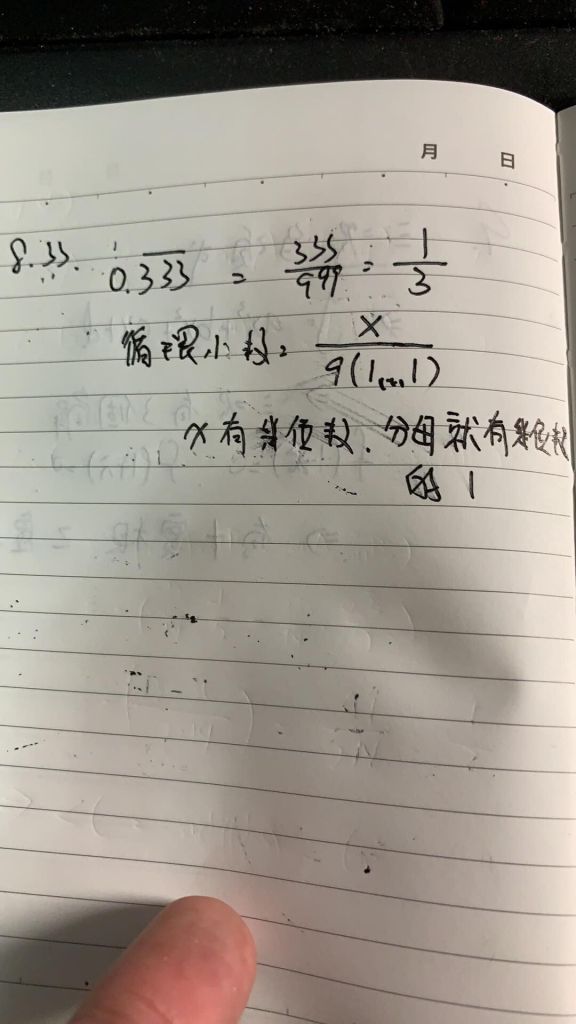 月 日
8.33. 0.333 = 333/999 = 1/3
循环小数: x/9(1...1)
x有几位数,分母就有几位数
的1